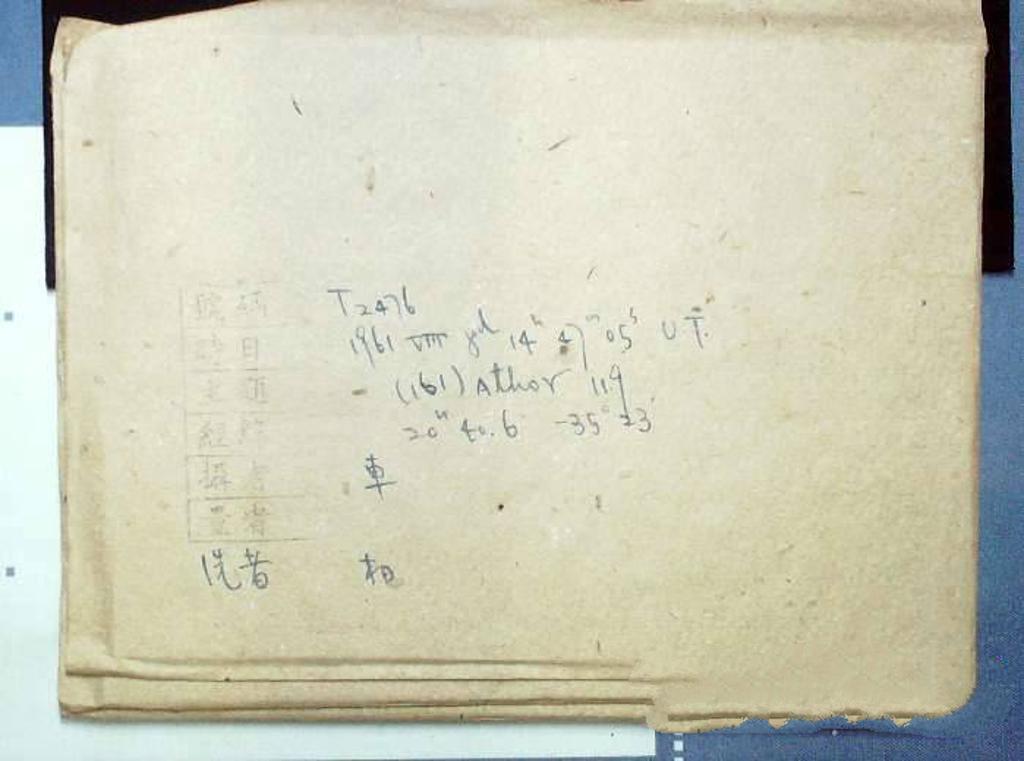 號碼 T2476
時日 1961 VIII 14ʰ 47ᵐ 05ˢ U.T.
主題 (161) Athor 119
經緯 20ʰ 40.6 -35° 23'
攝者 車
量者
洗者